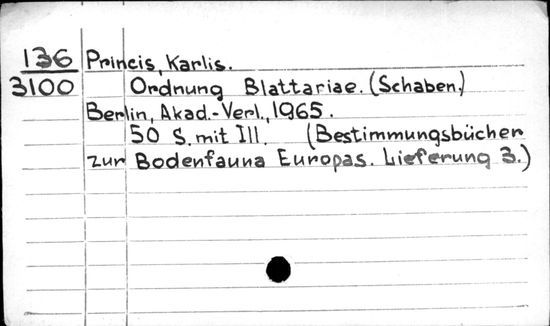 136 Princis, Karlis.
3100 Ordnung Blattariae. (Schaben.)
Berlin, Akad.-Verl., 1965.
50 S. mit Ill. (Bestimmungsbücher
zur Bodenfauna Europas. Lieferung 3.)